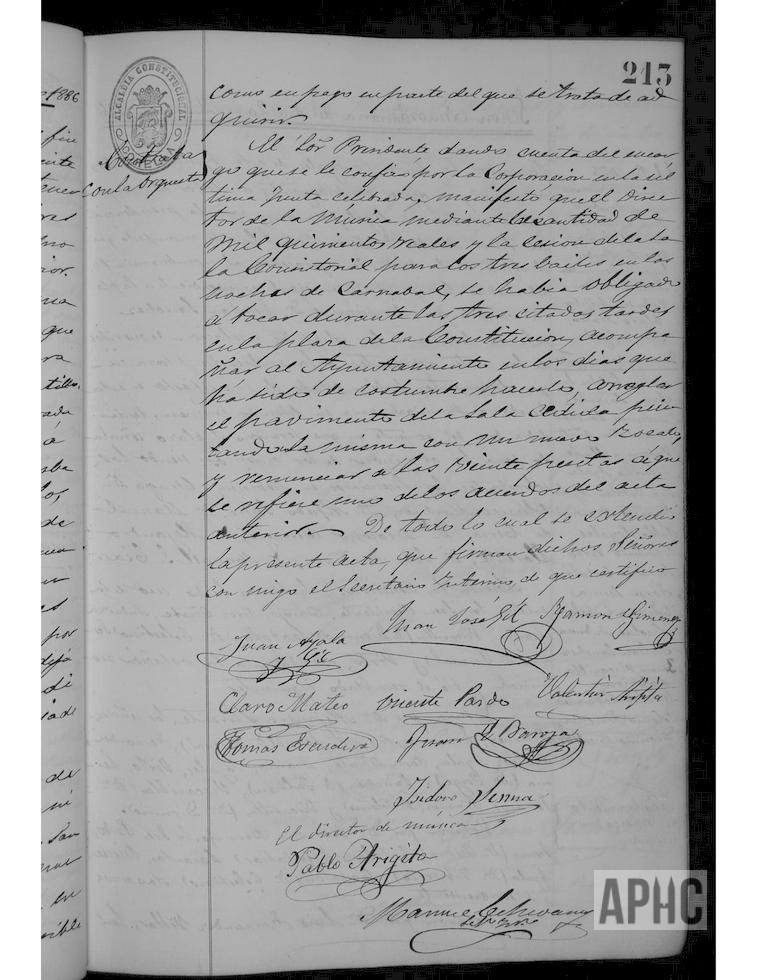 213
ALCALDÍA CONSTITUCIONAL
Contrata
con la orquesta
como en pago en parte del que se trata de ad
quirir.
El Sor Presidente dando cuenta del encar
go que se le confió por la Corporacion en la úl
tima junta celebrada, manifestó que el Direc
tor de la Música mediante la cantidad de
mil quinientos reales y la cesion de la Sa
la Consistorial para los tres bailes en las
noches de Carnabal, se habia obligado
á tocar durante las tres citadas tardes
en la plaza de la Constitucion, acompa
ñar al Ayuntamiento en los dias que
ha sido de costumbre hacerlo, arreglar
el pavimento de la Sala cedida pin
tando la misma con un nuevo
y renunciar á las veinte pesetas á que
se refiere uno de los acuerdos del acta
anterior. De todo lo cual se extendió
la presente acta, que firman dichos Señores
con migo el Secretario Interino, de que certifico
Juan José Gil Ramon Gimenez
Juan Ayala
y Gil
Claro Mateo Vicente Pardo Valentin Arigita
Tomás Escudero Juan J. Baroja
Isidoro Serma
El director de música
Pablo Arigita
Manuel
1886
que
de
por
dejó
de
ni
en
APHC